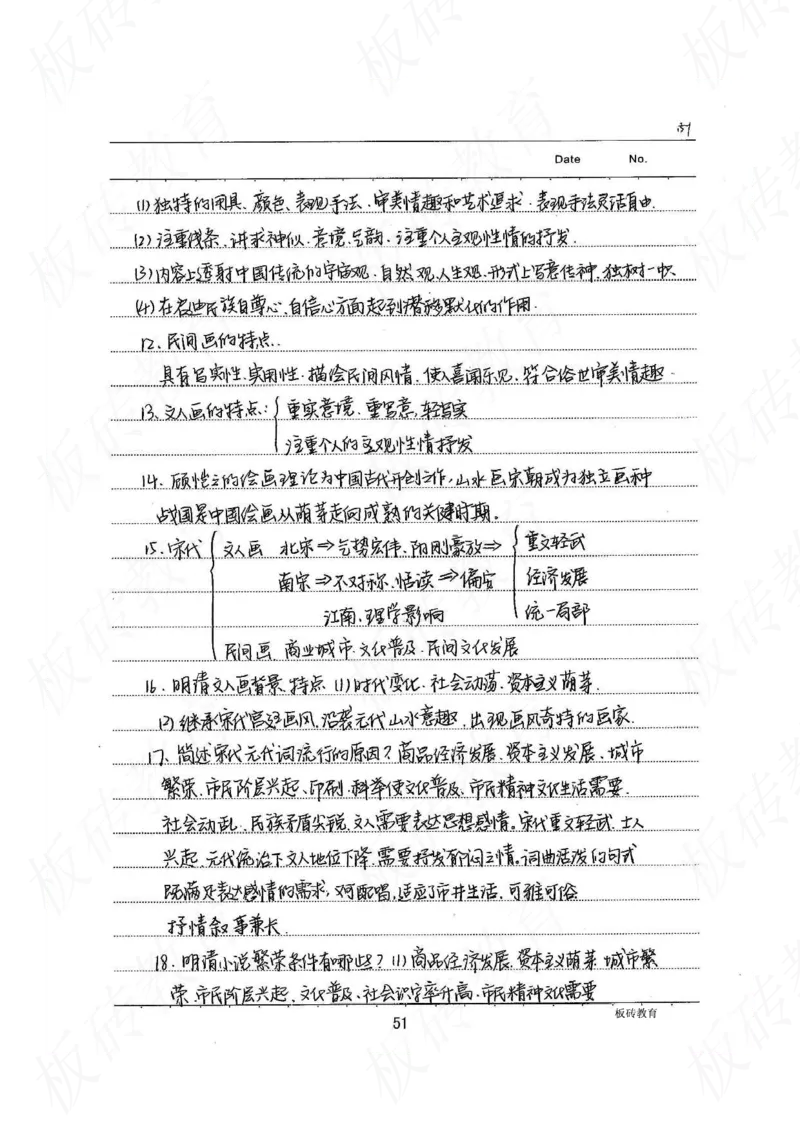 51
Date No.
(1)独特的用具、颜色、表现手法、审美情趣和艺术追求.表现手法灵活自由.
(2)注重线条、讲求神似.意境.气韵.注重个人主观性情的抒发.
(3)内容上透射中国传统的宇宙观.自然观.人生观.形式上写意传神.独树一帜
(4)在名曲民族自尊心.自信心方面起到潜移默化的作用.
12.民间画的特点.
具有写实性.实用性.描绘民间风情.使人喜闻乐见.符合俗世审美情趣.
13.文人画的特点:{重实意境.重写意,轻写实
注重个人的主观性情抒发
14.顾恺之的绘画理论为中国古代开创之作,山水画宋朝成为独立画种
战国是中国绘画从萌芽走向成熟的关健时期.
15.宋代{文人画 北宋⇒气势宏伟.阳刚豪放⇒{重文轻武
南宋⇒不对称.恬淡⇒偏安 经济发展
江南.理学影响 统一局部
民间画 商业城市.文化普及.民间文化发展
16.明清文人画背景.特点 (1)时代变化.社会动荡.资本主义萌芽.
(2)继承宋代宫廷画风.沿袭元代山水意趣,出现画风奇特的画家.
17、简述宋代元代词流行的原因?商品经济发展.资本主义发展、城市
繁荣.市民阶层兴起、印刷.科举使文化普及、市民精神文化生活需要.
社会动乱、民族矛盾尖锐.文人需要表达思想感情。宋代重文轻武.士人
兴起.元代统治下文人地位下降.需要抒发郁闷之情。词曲活泼的句式
既满足表达感情的需求,又可配唱,适应了市井生活,可雅可俗
抒情叙事兼长.
18.明清小说繁荣条件有哪些?(1)商品经济发展.资本主义萌芽.城市繁
荣.市民阶层兴起、文化普及、社会识字率升高.市民精神文化需要
板砖教育
51